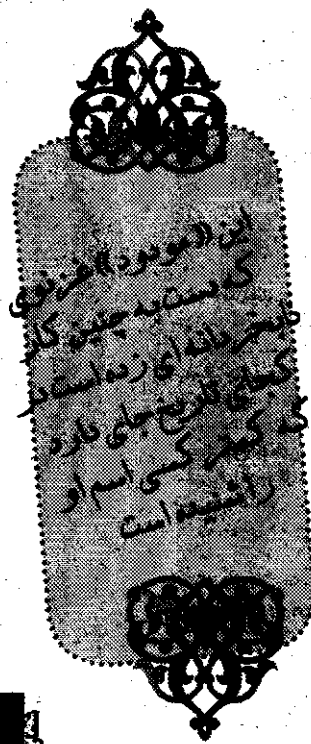 این «مودود» غزنوی
که دست به چنین کار
نابخردانه‌ای زده است در
کجای تاریخ جای دارد
که کمتر کسی اسم او
را شنیده است